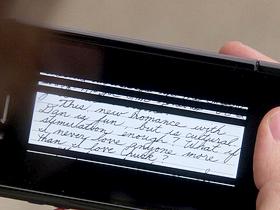 This new bromance with
Dan is fun, but is cultural
stimulation enough? What if
I never love anyone more
than I love Chuck?